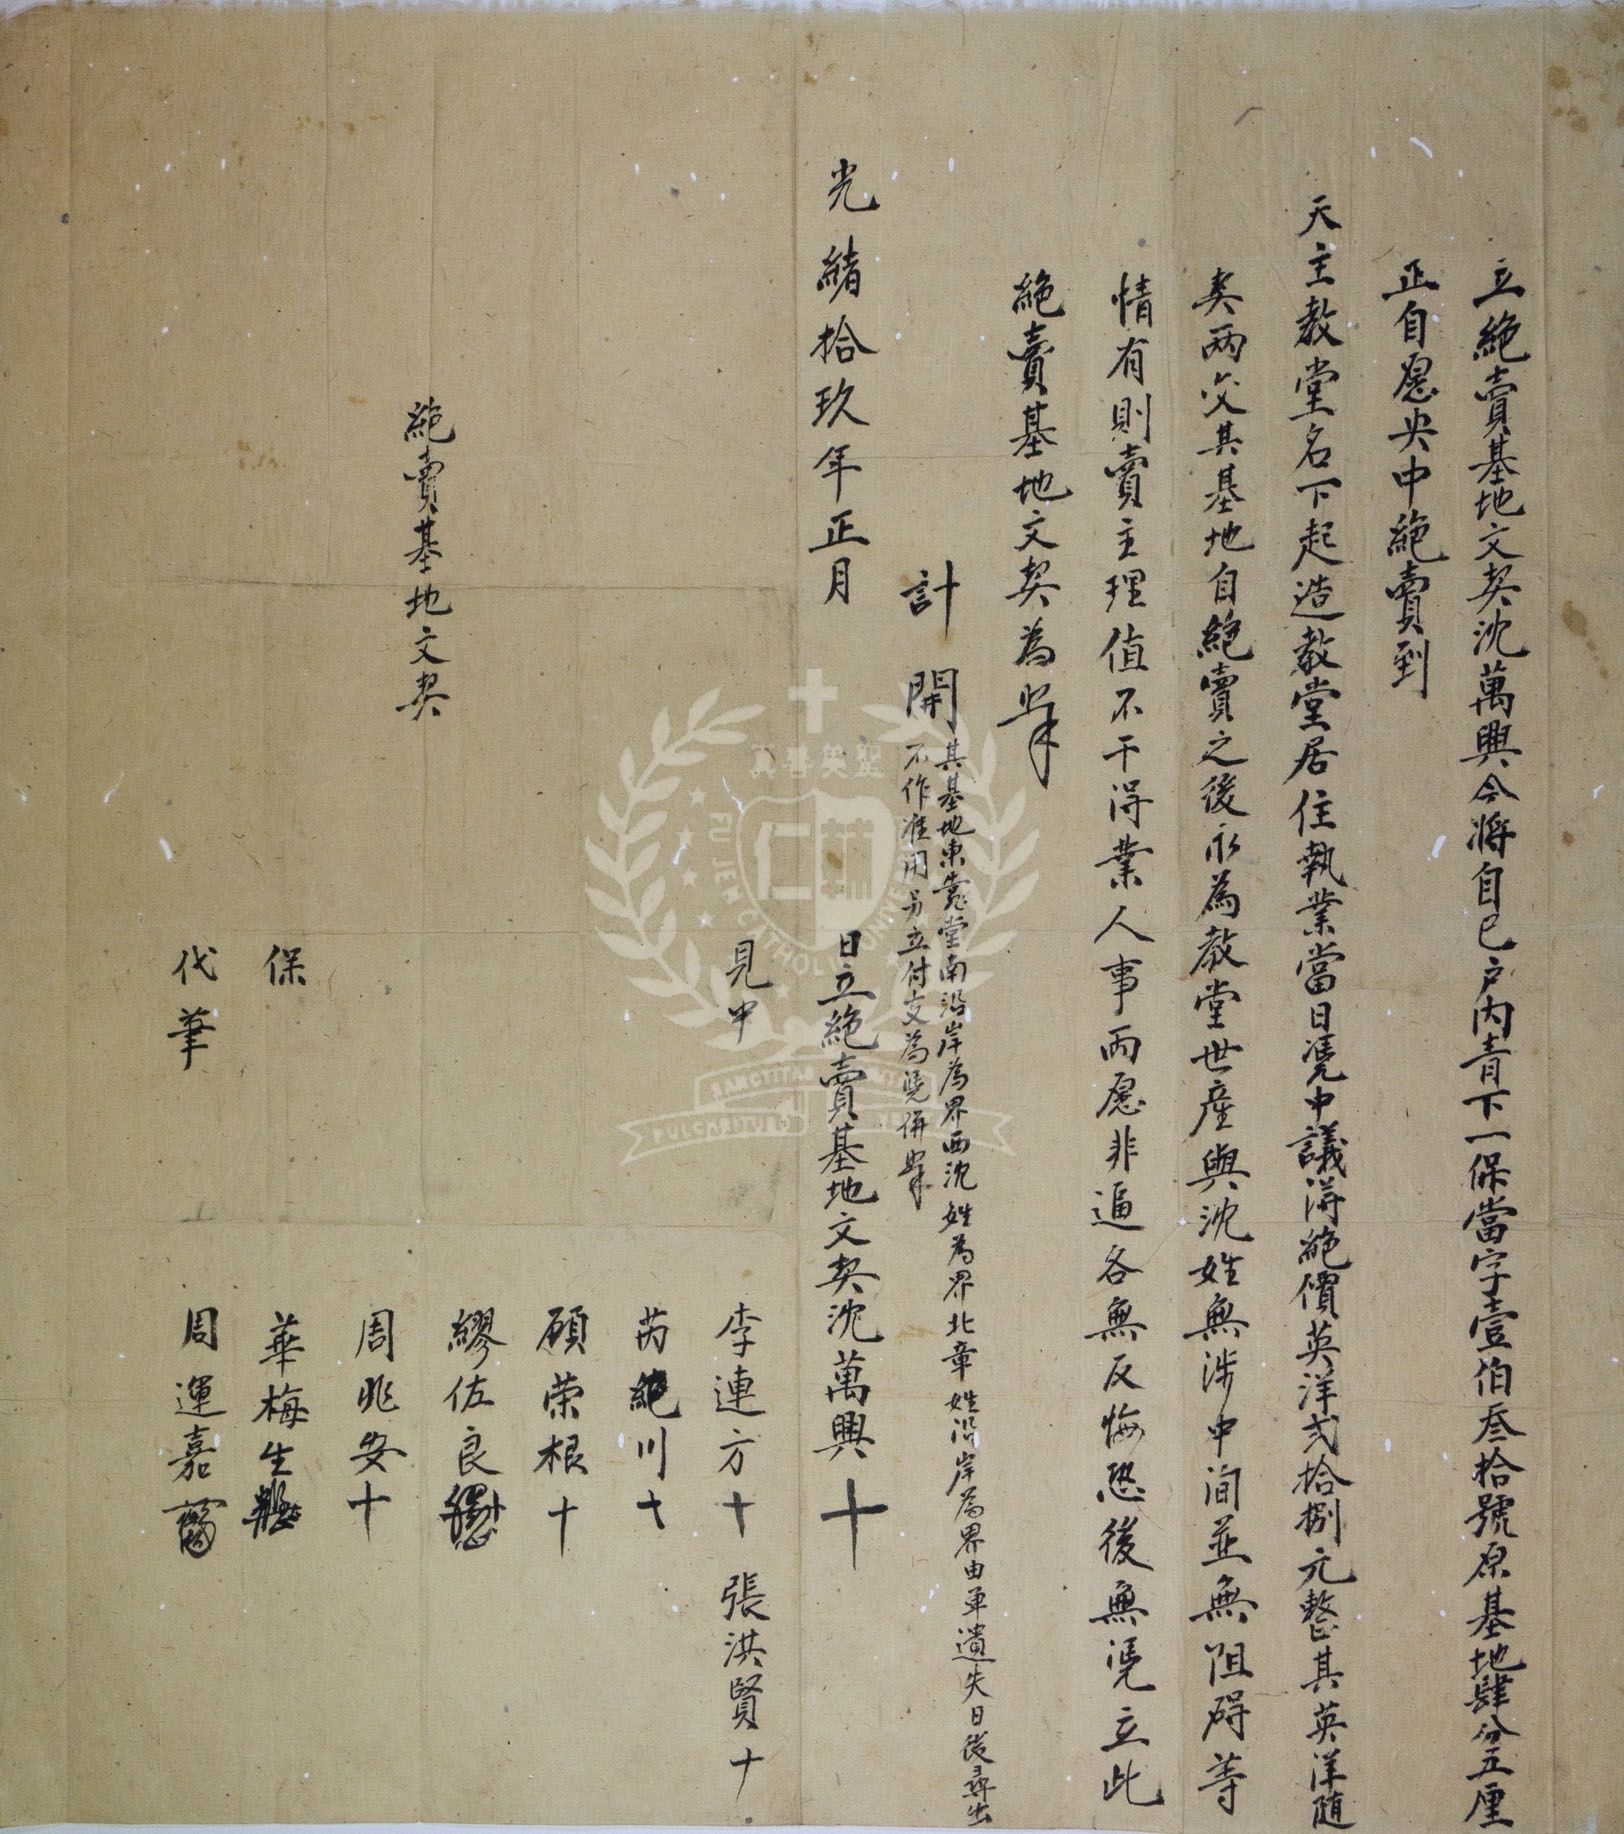 立絶賣基地文契沈萬興今將自己户内青下一保當字壹伯叁拾號原基地肆分五厘
正自愿央中絶賣到
天主教堂名下起造教堂居住執業當日凴中議得絶價英洋弍拾捌元整其英洋随
契两交其基地自絶賣之後永為教堂世産與沈姓無涉中间並無阻碍等
情有則賣主理值不干得業人事两愿非逼各無反悔恐後無凴立此
絶賣基地文契為
計開
其基地東靠堂南沿岸為界西沈姓為界北章姓沿岸為界由单遺失日後尋出
不作准用另立付支為凴併
光緒拾玖年正月 日立絶賣基地文契沈萬興十
見中 李連方十 張洪賢十
芮 川十
顾荣根十
繆佐良
周兆安十
絶賣基地文契
保 華梅生
代筆 周運嘉
真善美聖
輔仁
FU JEN CATHOLIC UNIVERSITY